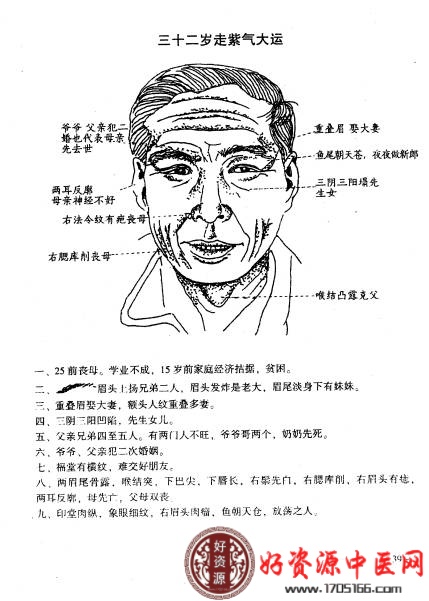 三十二岁走紫气大运
爷爷 父亲犯二
婚也代表母亲
先去世
重叠眉 娶大妻
鱼尾朝天苍，夜夜做新郎
两耳反廓
母亲神经不好
三阴三阳塌先
生女
右法令纹有疤丧母
右腮库削丧母
喉结凸露克父
一、25前丧母。学业不成，15岁前家庭经济拮据，贫困。
二、眉头上扬兄弟二人，眉头发炸是老大，眉尾淡身下有妹妹。
三、重叠眉娶大妻，额头人纹重叠多妻。
四、三阴三阳凹陷，先生女儿。
五、父亲兄弟四至五人。有两门人不旺，爷爷哥两个，奶奶先死。
六、爷爷、父亲犯二次婚姻。
七、福堂有横纹，难交好朋友。
八、两眉尾骨露，喉结突，下巴尖，下唇长，右鬓先门，右腮库削，右眉头有痣，
两耳反廓，母先亡，父母双丧
九、印堂肉纵，象眼细纹，右眉头肉瘤，鱼朝天仓，放荡之人。
好资源
好资源中医网
www.1705166.com